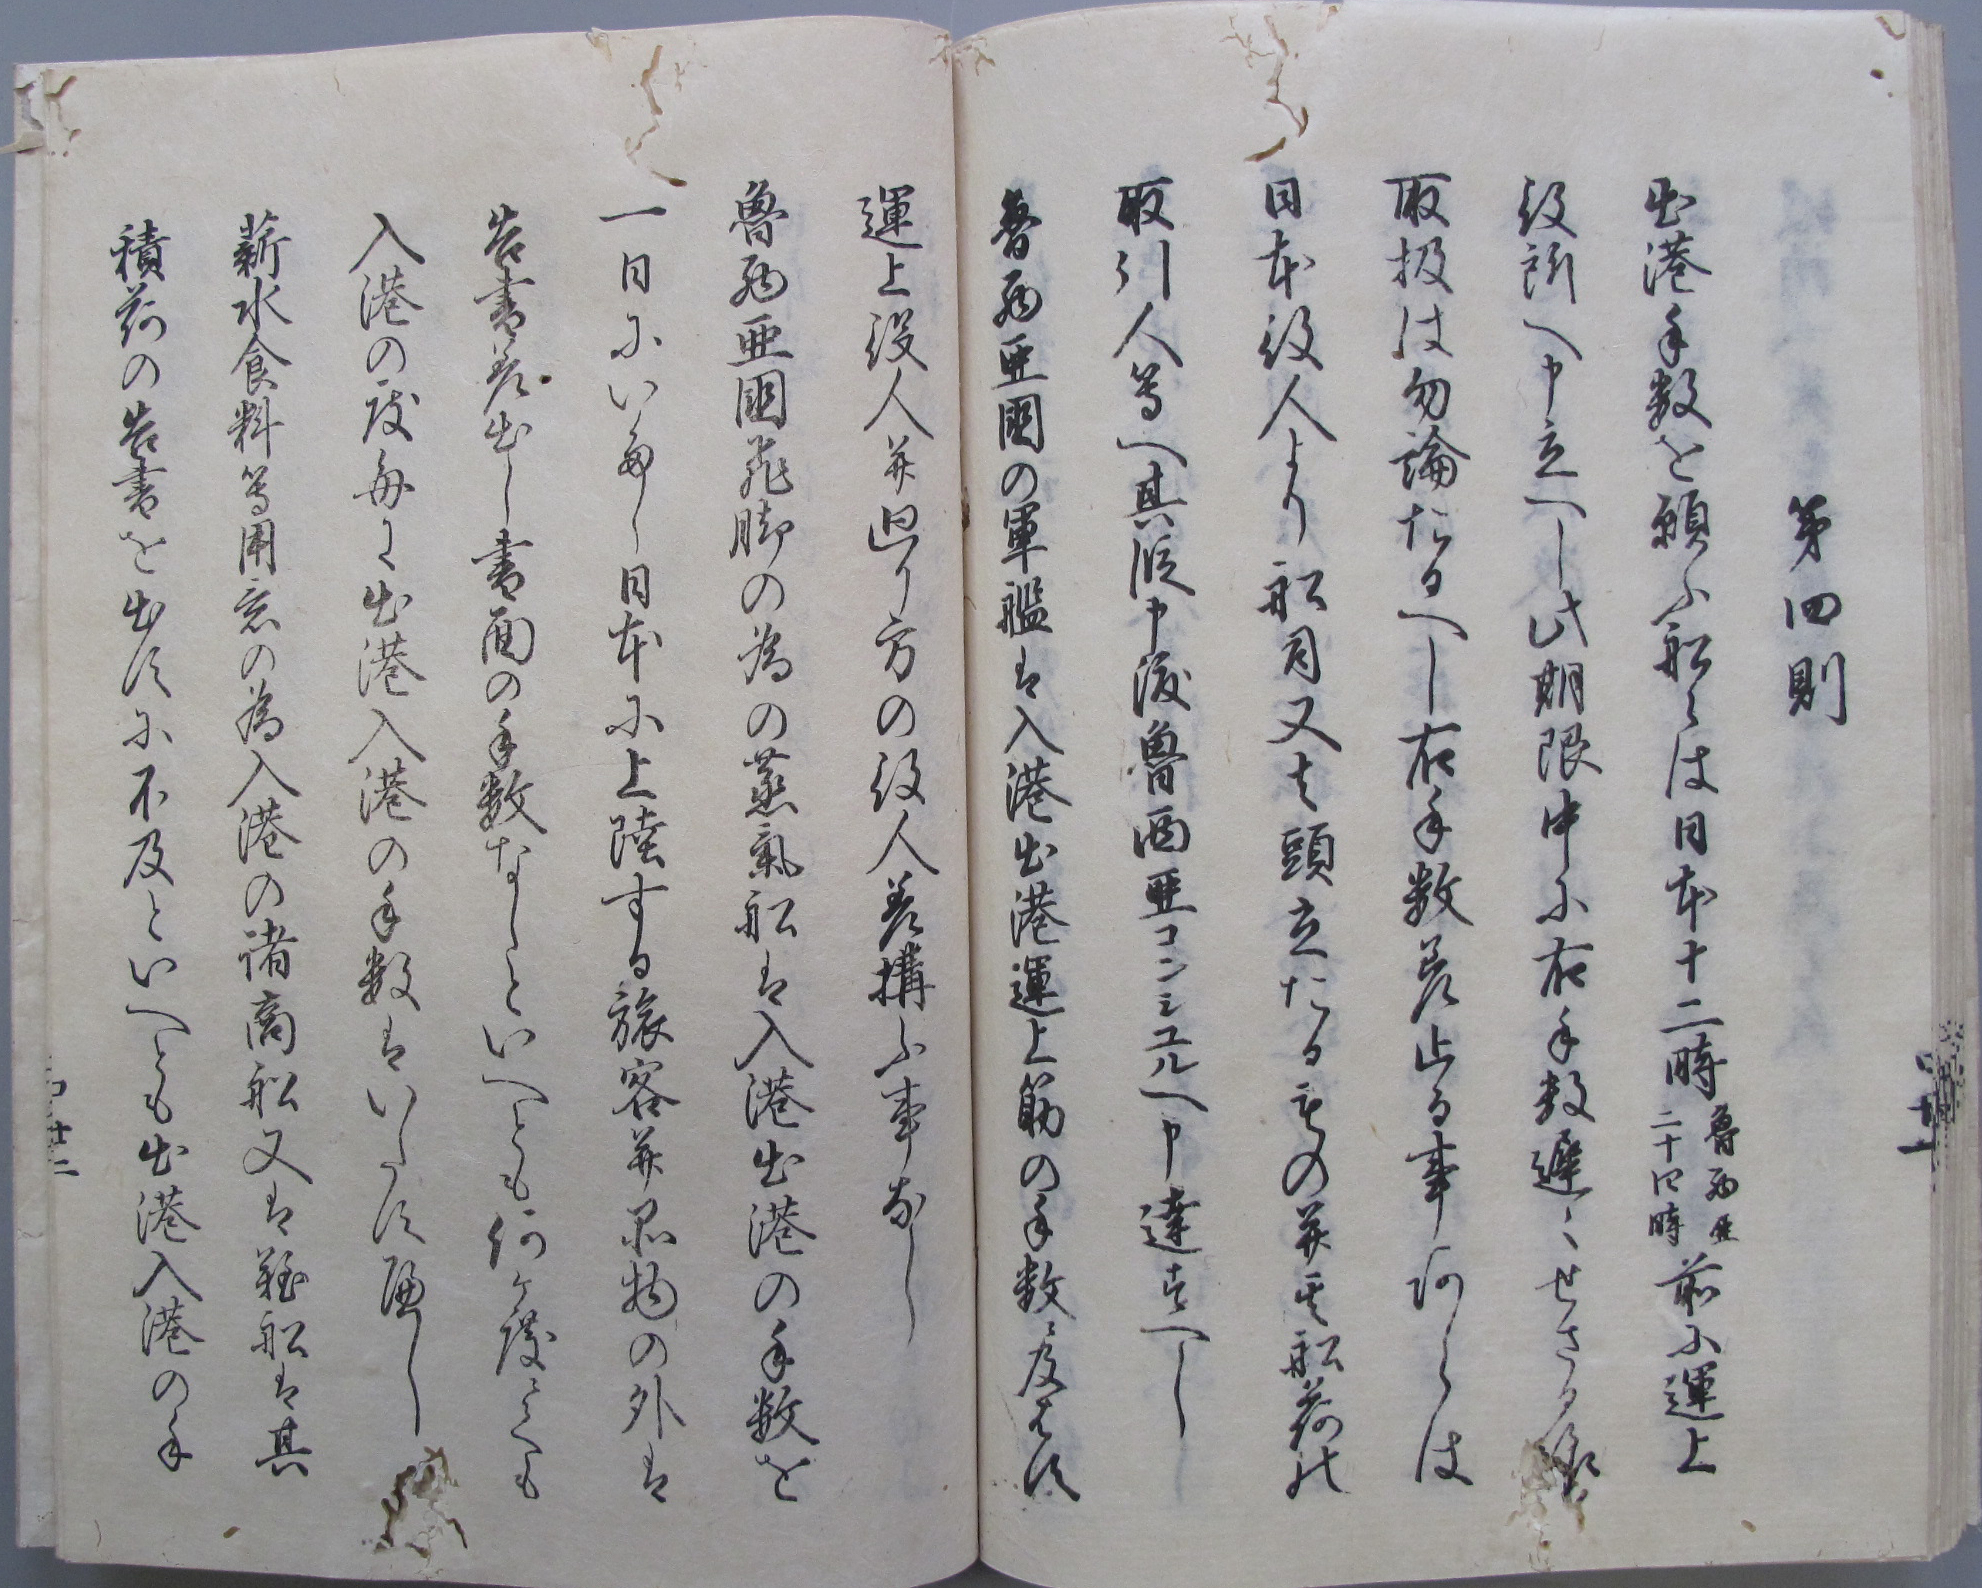 第四則
出港手数を願ふ船々は日本十二時魯西亜二十四時前に運上
役所へ申立へし此期限中に右手数遅々せさる様
取扱は勿論たるへし右手数差止る事あらは
日本役人より船司又は頭立たるもの并其船荷の
取引人等へ其段申渡魯西亜コンシユルへ申達すへし
魯西亜国の軍艦は入港出港運上筋の手数に及はす
運上役人并廻り方の役人差構ふ事なし
魯西亜国飛脚の為の蒸氣船は入港出港の手数を
一日にいたし日本に上陸する旅客并品物の外は
告書差出し書面の手数なしといへとも何ケ度にても
入港の度毎に出港入港の手数はいたす可し
薪水食料等用意の為入港の諸商船又は難船は其
積荷の告書を出すに不及といへとも出港入港の手
廿二